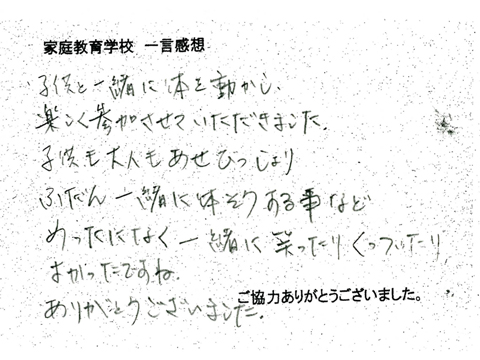 家庭教育学校 一言感想
子供と一緒に体を動かし、
楽しく参加させていただきました。
子供も大人もあせびっしょり
ふだん一緒に体そうある事など
めったになく一緒に笑ったりくっついたり
よかったですね。
ありがとうございました。
ご協力ありがとうございました。